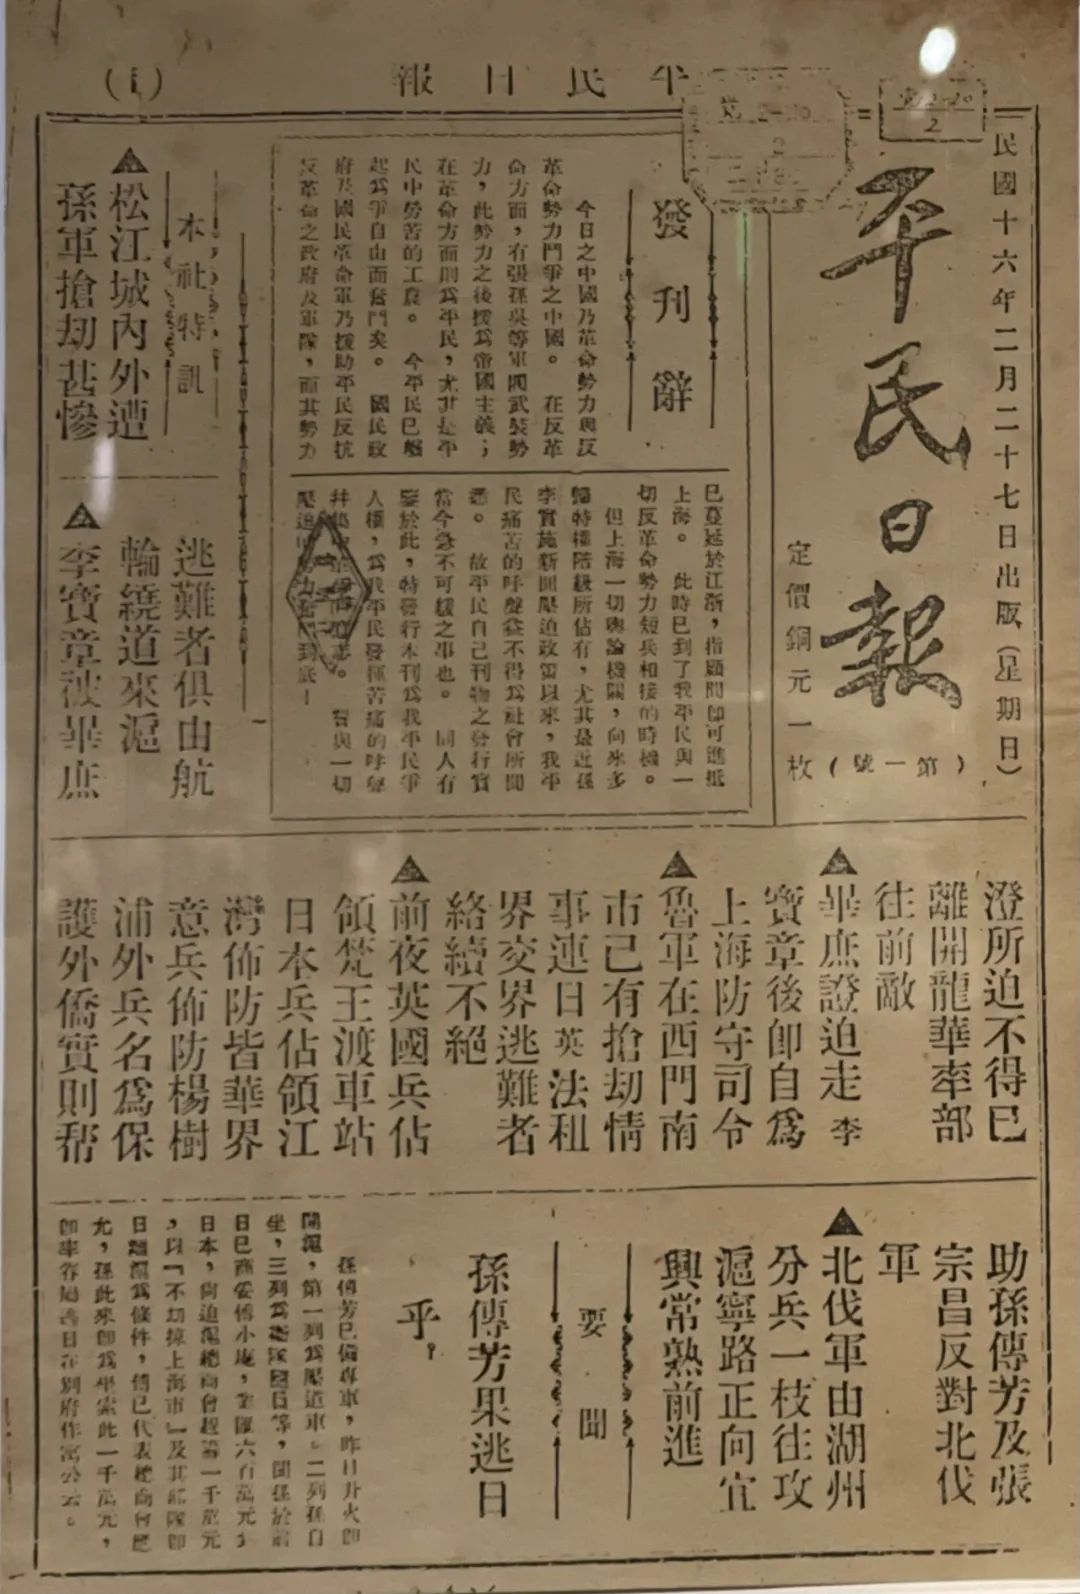 平民日報
(1)
民國十六年二月二十七日出版(星期日)
平民日報
(第一號)
定價銅元一枚
發刊辭
今日之中國乃革命勢力與反
革命勢力鬥爭之中國。 在反革
命方面,有張孫吳等軍閥武裝勢
力,此勢力之後援爲帝國主義;
在革命方面則爲平民,尤其是平
民中勞苦的工農。 今平民已崛
起爲爭自由而奮鬥矣。 國民政
府及國民革命軍乃援助平民反抗
反革命之政府及軍隊,而其勢力
已蔓延於江浙,指顧間卽可進抵
上海。 此時已到了我平民與一
切反革命勢力短兵相接的時機。
但上海一切輿論機關,向來多
歸特權階級所佔有,尤其最近孫
李實施新聞壓迫政策以來,我平
民痛苦的呼聲益不得爲社會所聞
悉。 故平民自己刊物之發行實
當今急不可緩之事也。 同人有
鑒於此,特發行本刊爲我平民爭
人權,爲我平民發揮苦痛的呼聲
誓與一切
壓迫 到底!
本社特訊
▲松江城內外遭
孫軍搶刧甚慘
逃難者俱由航
輪繞道來滬
▲李寶章被畢庶
澄所迫不得已
離開龍華率部
往前敵
▲畢庶證迫走李
寶章後卽自爲
上海防守司令
▲魯軍在西門南
市已有搶刧情
事連日英法租
界交界逃難者
絡續不絕
▲前夜英國兵佔
領梵王渡車站
日本兵佔領江
灣佈防皆華界
意兵佈防楊樹
浦外兵名爲保
護外僑實則帮
助孫傳芳及張
宗昌反對北伐
軍
▲北伐軍由湖州
分兵一枝往攻
滬寧路正向宜
興常熟前進
要聞
孫傳芳果逃日
乎?
孫傳芳已備專車,昨日升火卽
開滬,第一列爲壓道車。二列孫自
坐,三列爲衛隊國員等,聞孫於前
日已商妥傅小庵,金匯六百萬元去
日本,尙迫滬總商會趕籌一千萬元
,以『不刧掠上海市』及其部隊卽
日離滬爲條件,傅已代表總商會應
允,孫此來卽爲坐索此一千萬元,
卽率眷屬逃日在別府作寓公云。